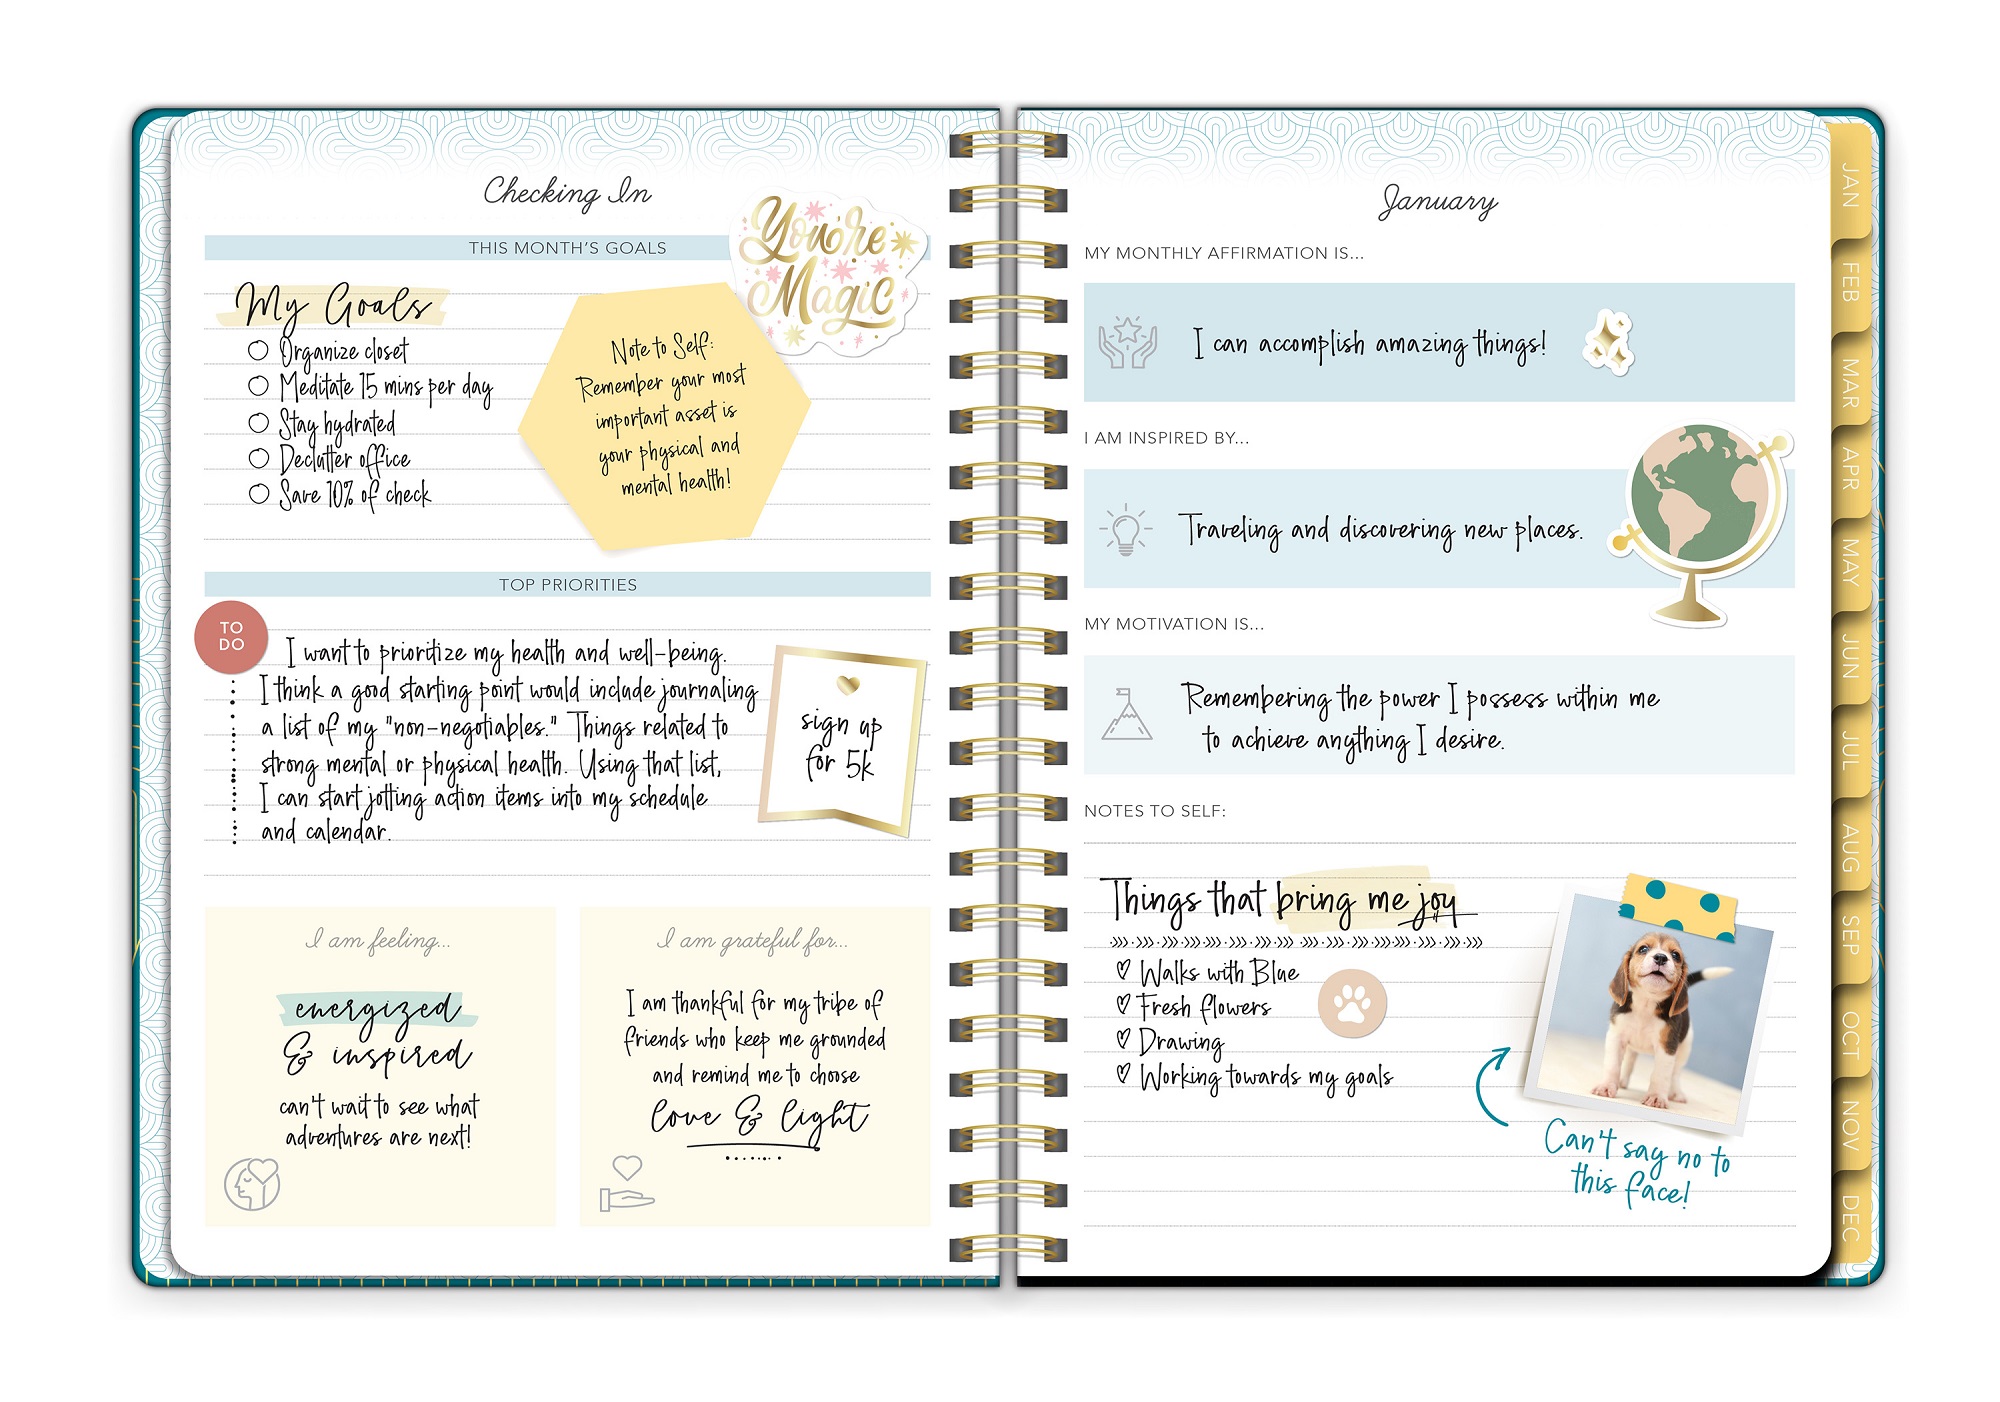 Checking In
THIS MONTH'S GOALS
You're
Magic
My Goals
Organize closet
Meditate 15 mins per day
Stay hydrated
Declutter office
Save 10% of check
Note to Self:
Remember your most
important asset is
your physical and
mental health!
TOP PRIORITIES
TO
DO
I want to prioritize my health and well-being.
I think a good starting point would include journaling
a list of my "non-negotiables." Things related to
strong mental or physical health. Using that list,
I can start jotting action items into my schedule
and calendar.
sign up
for 5k
I am feeling...
energized
& inspired
can't wait to see what
adventures are next!
I am grateful for...
I am thankful for my tribe of
friends who keep me grounded
and remind me to choose
love & light
January
MY MONTHLY AFFIRMATION IS...
I can accomplish amazing things!
I AM INSPIRED BY...
Traveling and discovering new places.
MY MOTIVATION IS...
Remembering the power I possess within me
to achieve anything I desire.
NOTES TO SELF:
Things that bring me joy
Walks with Blue
Fresh flowers
Drawing
Working towards my goals
Can't say no to
this face!
JAN
FEB
MAR
APR
MAY
JUN
JUL
AUG
SEP
OCT
NOV
DEC